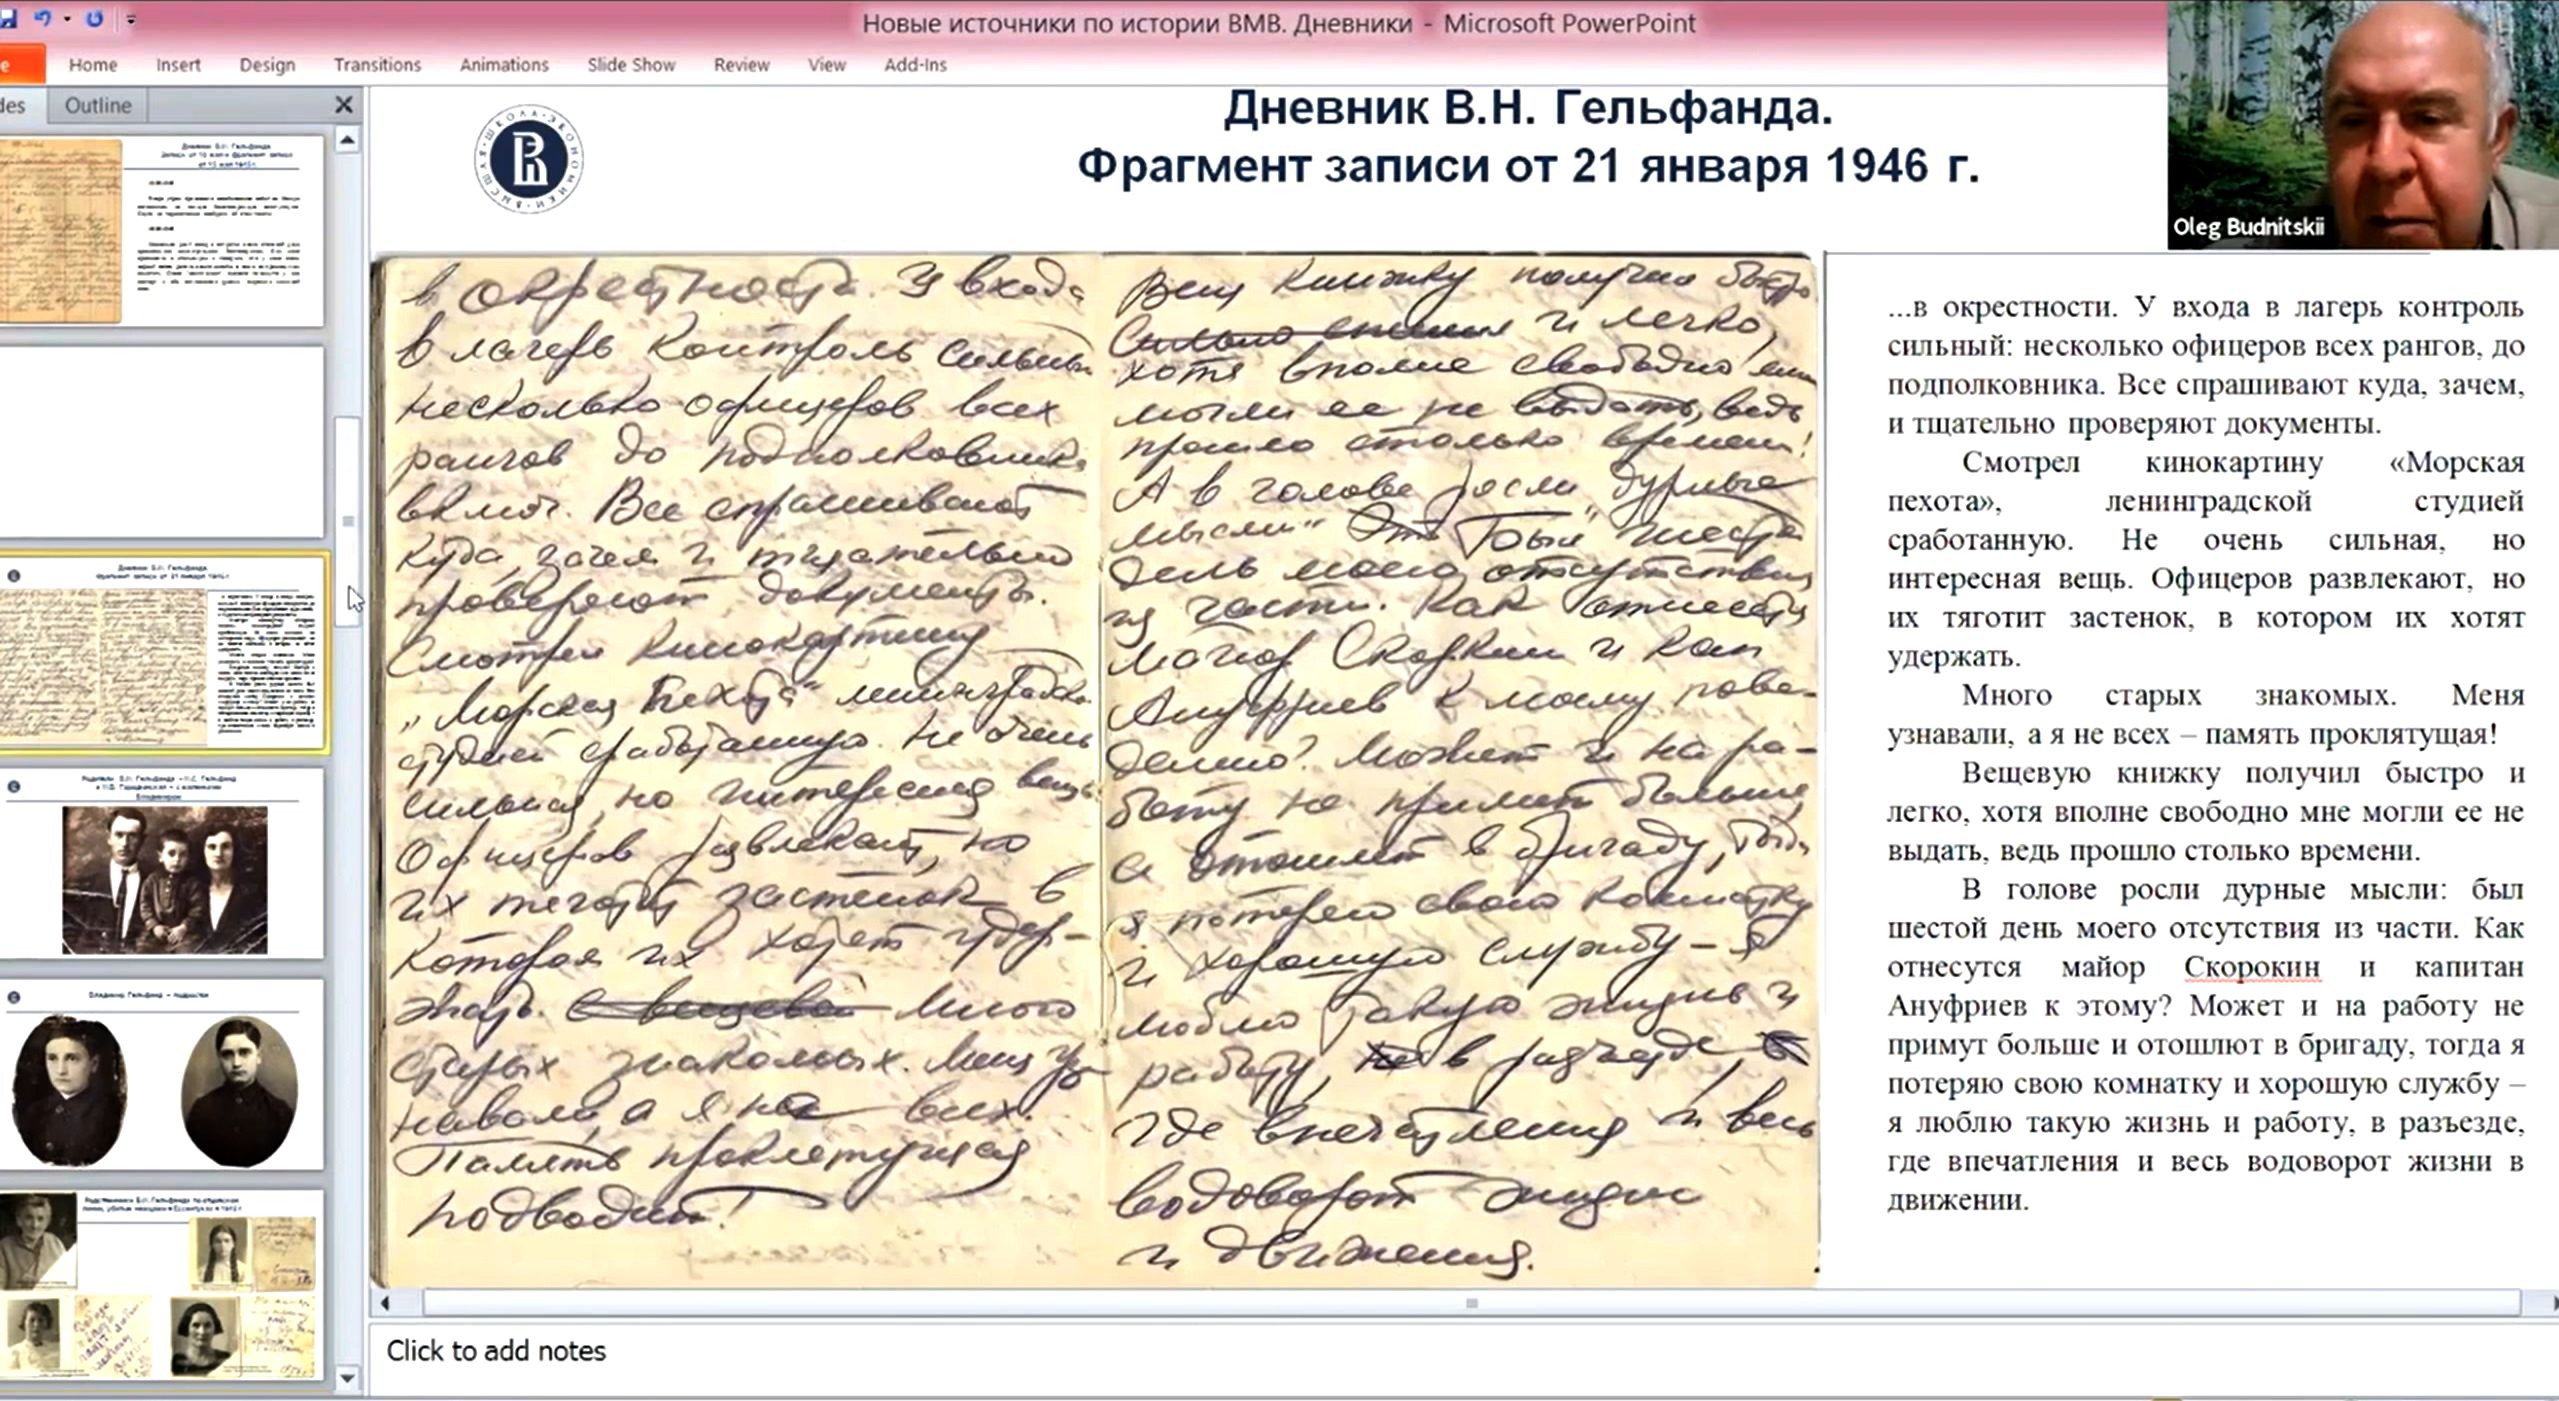 Новые источники по истории ВМВ. Дневники - Microsoft PowerPoint
Home Insert Design Transitions Animations Slide Show Review View Add-Ins
Outline
Дневник В.Н. Гельфанда.
Фрагмент записи от 21 января 1946 г.
ВЫСШАЯ ШКОЛА ЭКОНОМИКИ
Oleg Budnitskii
в окрестности. У входа
в лагерь контроль сильный
несколько офицеров всех
рангов до подполковника
включ. Все спрашивают
куда, зачем и тщательно
проверяют документы.
Смотрел кинокартину
„Морская Пехота" ленинградской
студией сработанную. Не очень
сильная, но интересная вещь.
Офицеров развлекают, но
их тяготит застенок в
котором их хотят удер-
жать. Много
старых знакомых. Меня уз-
навали, а я не всех.
Память проклятущая
подводит!
Вещ книжку получил быстро
и легко,
хотя вполне свободно мне
могли ее не выдать, ведь
прошло столько времени!
А в голове росли „дурные
мысли" Был шестой
день моего отсутствия
из части. Как отнесутся
майор Скоркин и кап
Ануфриев к моему пове-
дению? Может и на ра-
боту не примет больше,
а отошлет в бригаду, тогда
я потеряю свою комнатку
и хорошую службу – я
люблю такую жизнь и
работу, в разъезде,
где впечатления и весь
водоворот жизни
и движения.
...в окрестности. У входа в лагерь контроль
сильный: несколько офицеров всех рангов, до
подполковника. Все спрашивают куда, зачем,
и тщательно проверяют документы.
Смотрел кинокартину «Морская
пехота», ленинградской студией
сработанную. Не очень сильная, но
интересная вещь. Офицеров развлекают, но
их тяготит застенок, в котором их хотят
удержать.
Много старых знакомых. Меня
узнавали, а я не всех – память проклятущая!
Вещевую книжку получил быстро и
легко, хотя вполне свободно мне могли ее не
выдать, ведь прошло столько времени.
В голове росли дурные мысли: был
шестой день моего отсутствия из части. Как
отнесутся майор Скорокин и капитан
Ануфриев к этому? Может и на работу не
примут больше и отошлют в бригаду, тогда я
потеряю свою комнатку и хорошую службу –
я люблю такую жизнь и работу, в разъезде,
где впечатления и весь водоворот жизни в
движении.
Click to add notes